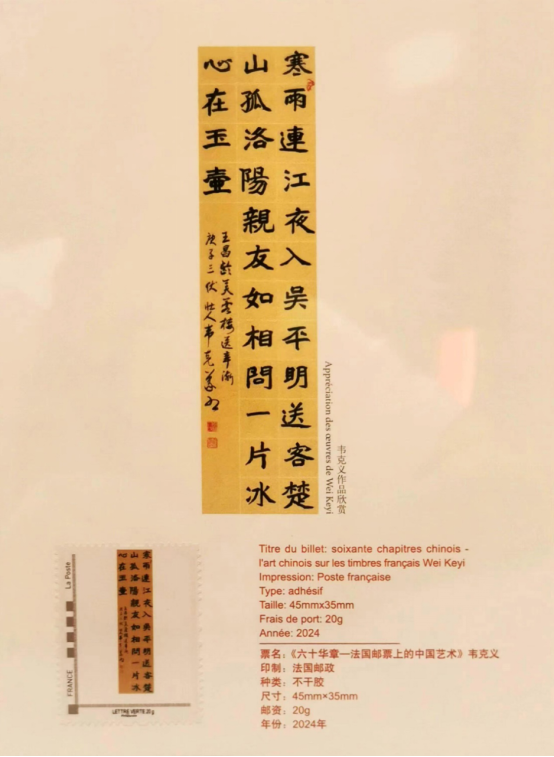 寒雨連江夜入吳平明送客楚
山孤洛陽親友如相問一片冰
心在玉壺
王昌齡芙蓉樓送辛漸
庚子三伏 壯人韦克义书
Appréciation des œuvres de Wei Keyi
韦克义作品欣赏
La Poste
FRANCE
寒雨連江夜入吳平明送客楚
山孤洛陽親友如相問一片冰
心在玉壺
LETTRE VERTE 20 g
Titre du billet: soixante chapitres chinois -
l'art chinois sur les timbres français Wei Keyi
Impression: Poste française
Type: adhésif
Taille: 45mmx35mm
Frais de port: 20g
Année: 2024
票名:《六十华章—法国邮票上的中国艺术》韦克义
印制: 法国邮政
种类: 不干胶
尺寸: 45mm×35mm
邮资: 20g
年份: 2024年